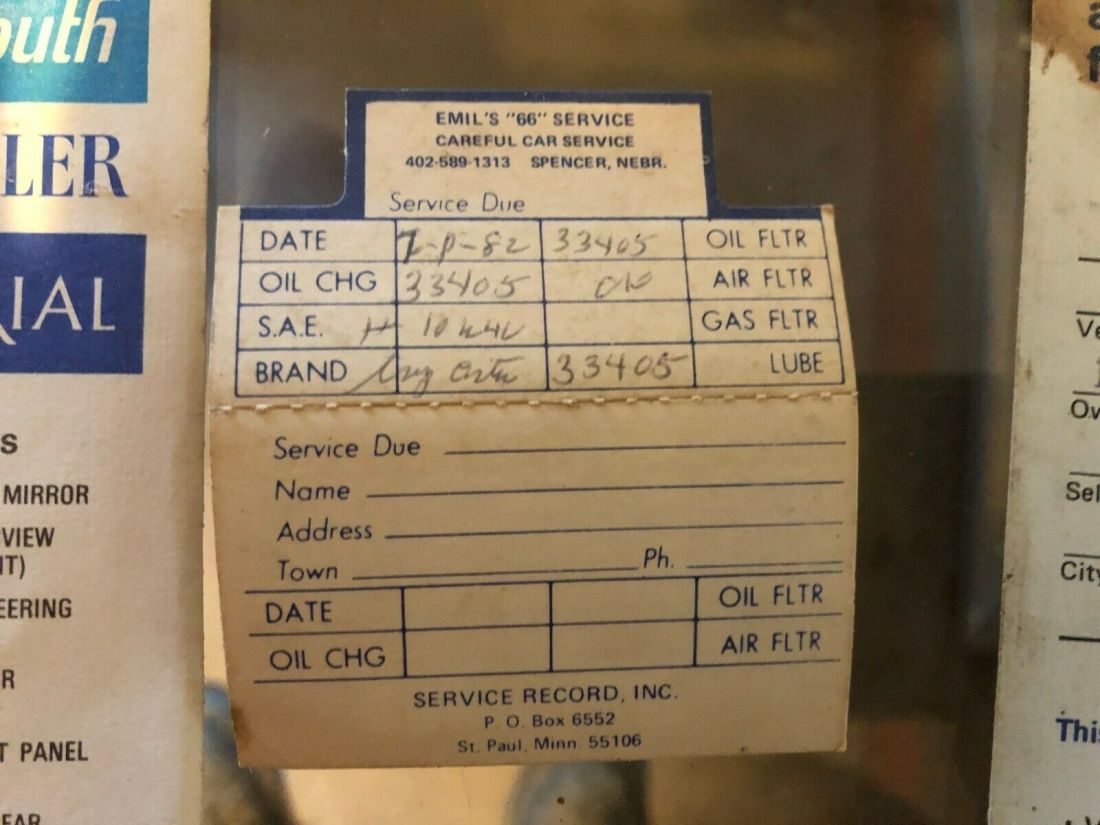 outh
LER
RIAL
S
MIRROR
VIEW
IT)
EERING
R
T PANEL
EAR
EMIL'S "66" SERVICE
CAREFUL CAR SERVICE
402-589-1313 SPENCER, NEBR.
Service Due
DATE 33405 OIL FLTR
OIL CHG 33405 OK AIR FLTR
S.A.E. GAS FLTR
BRAND 33405 LUBE
Service Due
Name
Address
Town Ph.
DATE OIL FLTR
OIL CHG AIR FLTR
SERVICE RECORD, INC.
P. O. Box 6552
St. Paul, Minn 55106
Ve
Ow
Sel
City
This